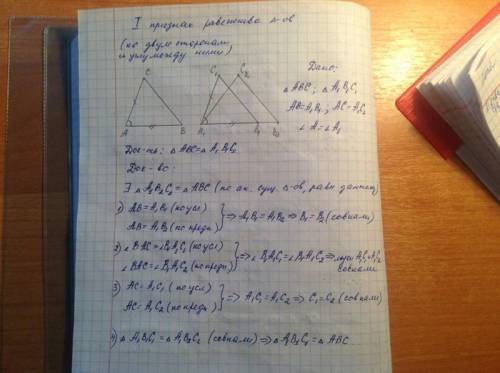 I признак равенства Δ-ов
(по двум сторонам
и углу между ними)
Дано:
Δ ABC; Δ A₁B₁C₁
AB=A₁B₁; AC=A₁C₁
∠A=∠A₁
C
A
B
C₁
C₂
A₁
B₁
B₂
Док-ть: Δ ABC=Δ A₁B₁C₁
Док-во:
∃ Δ A₁B₂C₂=Δ ABC (по ак. сущ. Δ-ов, равн данному)
1) AB=A₁B₁ (по усл)
AB=A₁B₂ (по предп)
⇒ A₁B₁=A₁B₂ ⇒ B₁=B₂ (совпали)
2) ∠BAC=∠B₁A₁C₁ (по усл)
∠BAC=∠B₂A₁C₂ (по предп)
⇒ ∠B₁A₁C₁=∠B₂A₁C₂ ⇒ лучи A₁C₁ и A₁C₂
совпали
3) AC=A₁C₁ (по усл)
AC=A₁C₂ (по предп)
⇒ A₁C₁=A₁C₂ ⇒ C₁=C₂ (совпали)
4) Δ A₁B₁C₁=Δ A₁B₂C₂ (совпали) ⇒ Δ A₁B₁C₁=Δ ABC.